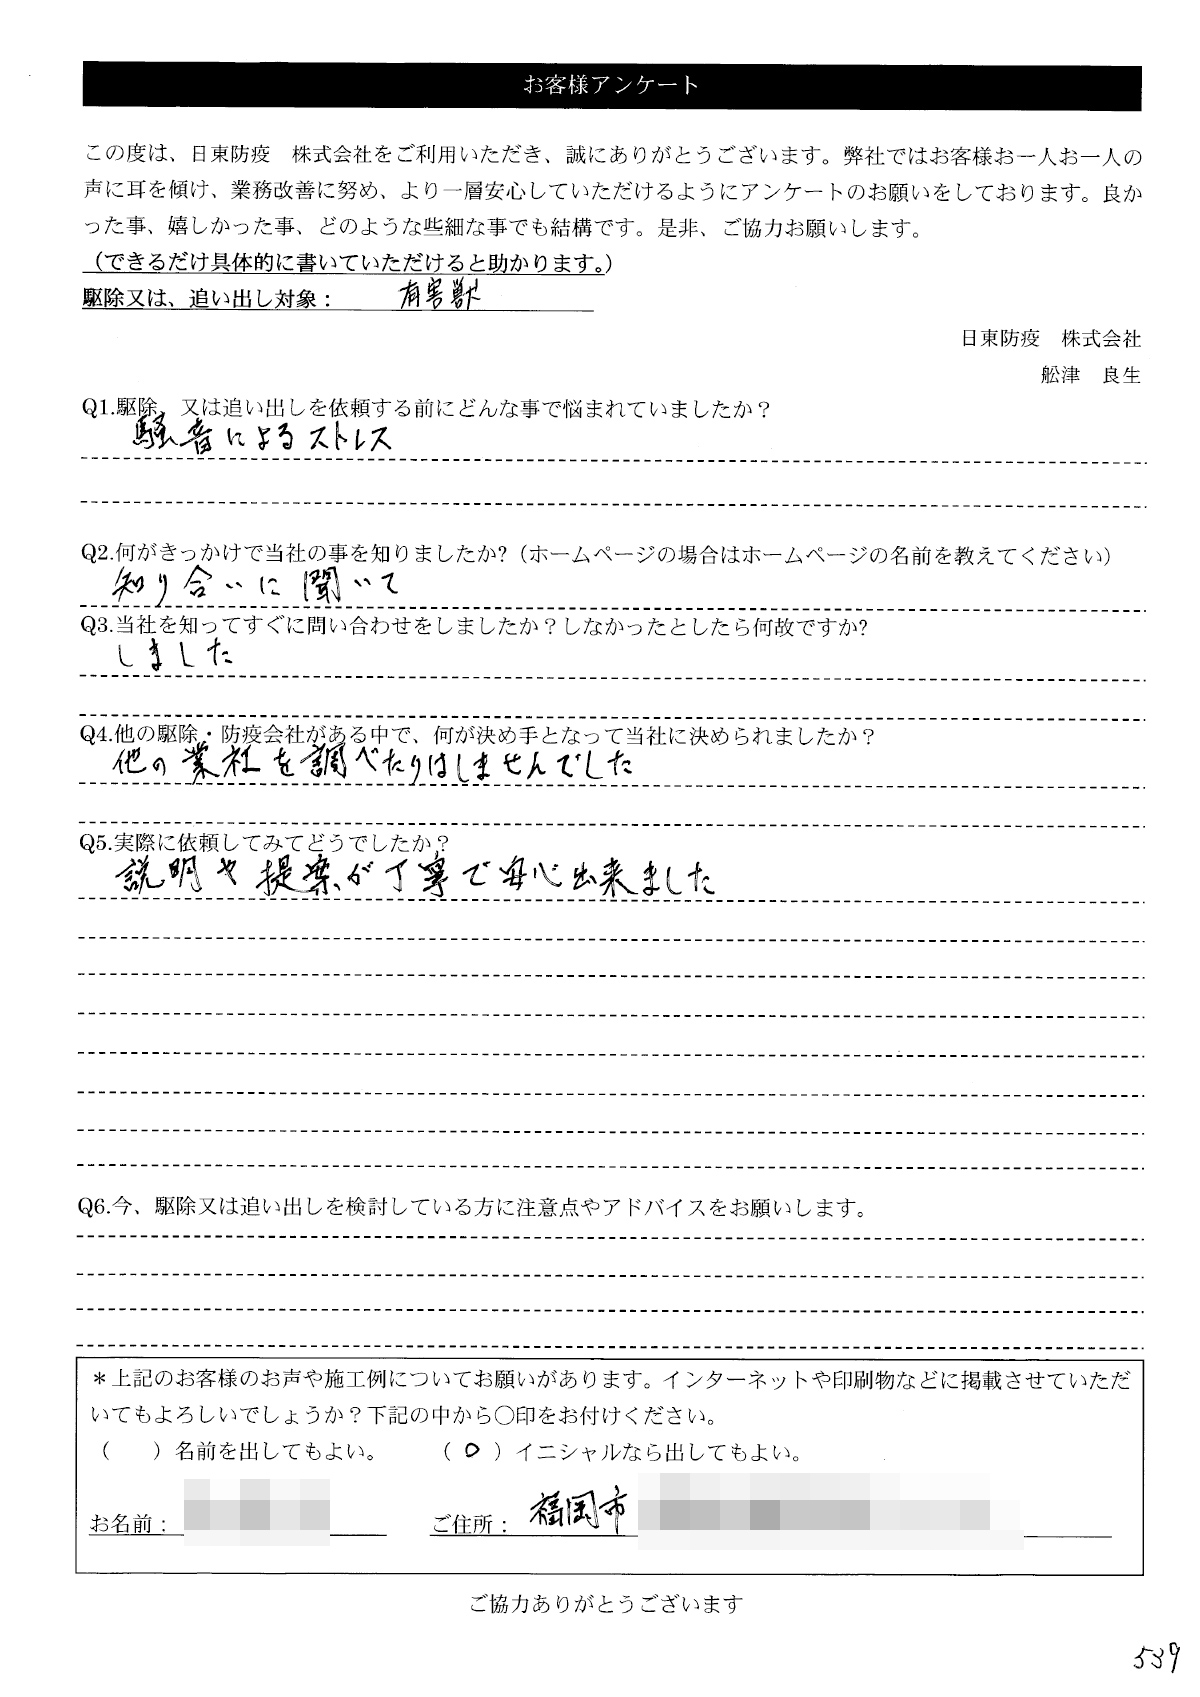 お客様アンケート
この度は、日東防疫　株式会社をご利用いただき、誠にありがとうございます。弊社ではお客様お一人お一人の
声に耳を傾け、業務改善に努め、より一層安心していただけるようにアンケートのお願いをしております。良か
った事、嬉しかった事、どのような些細な事でも結構です。是非、ご協力お願いします。
（できるだけ具体的に書いていただけると助かります。）
駆除又は、追い出し対象： 有害獣
日東防疫　株式会社
舩津　良生
Q1.駆除、又は追い出しを依頼する前にどんな事で悩まれていましたか？
騒音によるストレス
Q2.何がきっかけで当社の事を知りましたか?（ホームページの場合はホームページの名前を教えてください）
知り合いに聞いて
Q3.当社を知ってすぐに問い合わせをしましたか？しなかったとしたら何故ですか?
しました
Q4.他の駆除・防疫会社がある中で、何が決め手となって当社に決められましたか？
他の業社を調べたりはしませんでした
Q5.実際に依頼してみてどうでしたか？
説明や提案が丁寧で安心出来ました
Q6.今、駆除又は追い出しを検討している方に注意点やアドバイスをお願いします。
＊上記のお客様のお声や施工例についてお願いがあります。インターネットや印刷物などに掲載させていただ
いてもよろしいでしょうか？下記の中から〇印をお付けください。
（　　）名前を出してもよい。　（ 〇 ）イニシャルなら出してもよい。
お名前：　ご住所： 福岡市
ご協力ありがとうございます
539